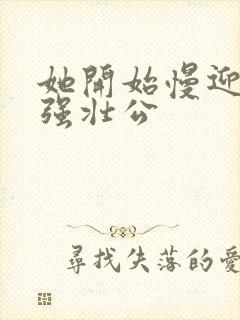 她開始慢迎
强壮公
尋找失落的愛